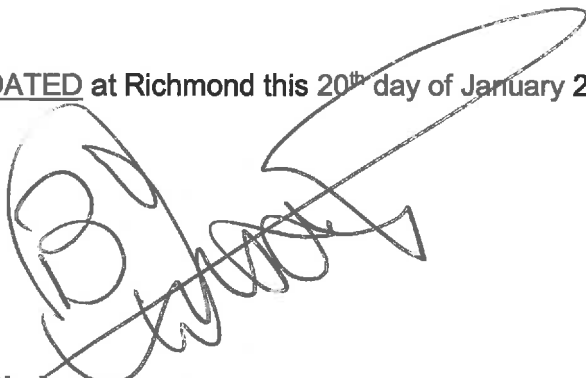 DATED at Richmond this 20th day of January 2